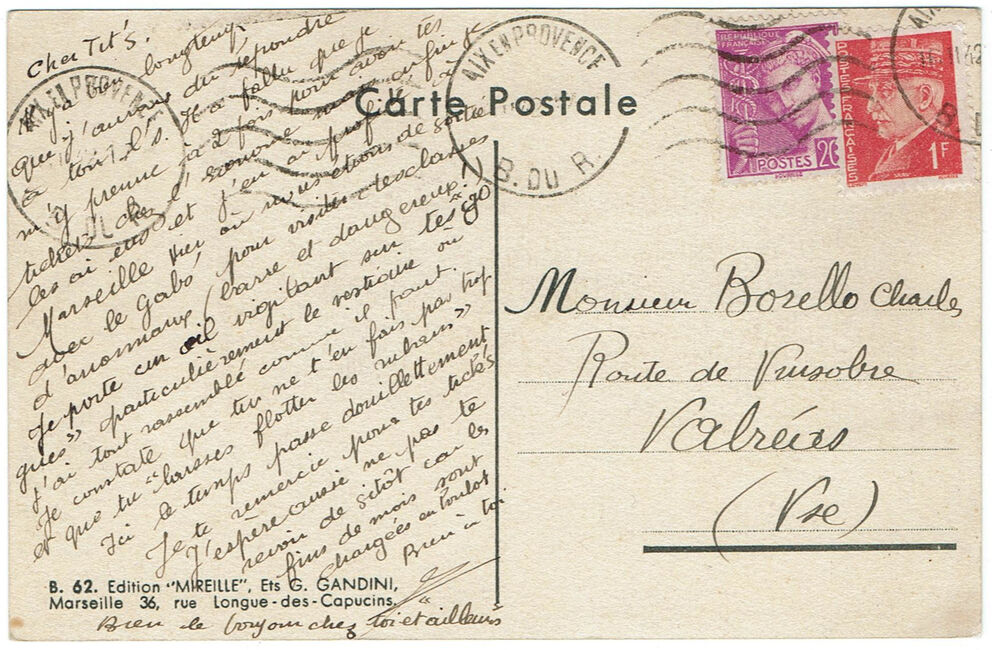 Carte Postale
Cher Tit's.
Il y a bien longtemps
que j'aurais du répondre
à ton l.s. Il a fallu que je
m'y prenne à 2 fois pour avoir tes
tickets chez d'Economie mais enfin je
les ai eus et j'en ai profité à
Marseille hier où nous étions de sortie
avec le Gabó pour visiter les classes
d'anormaux (barre et dangereux)
Je porte un œil vigilant sur tes "gigo
gues" particulièrement le vestiaire où
j'ai tout rassemblé comme il faut.
Je constate que tu ne t'en fais pas trop
et que tu "laisses flotter les rubans"
Ici le temps passe douillettement
Je te remercie pour tes tickés
J'espère aussi ne pas te
revoir de sitôt car les
fins de mois sont
chargées en boulot
Bien à toi
Bien le bonjour chez toi et ailleurs
B. 62. Edition "MIREILLE", Ets G. GANDINI,
Marseille 36, rue Longue-des-Capucins.
AIX EN PROVENCE
B. DU R.
AIX EN PROVENCE
REPUBLIQUE
FRANÇAISE
POSTES 20
POSTES FRANÇAISES
1F
Monsieur Borello Charles
Route de Vinsobre
Valréas
(Vse)